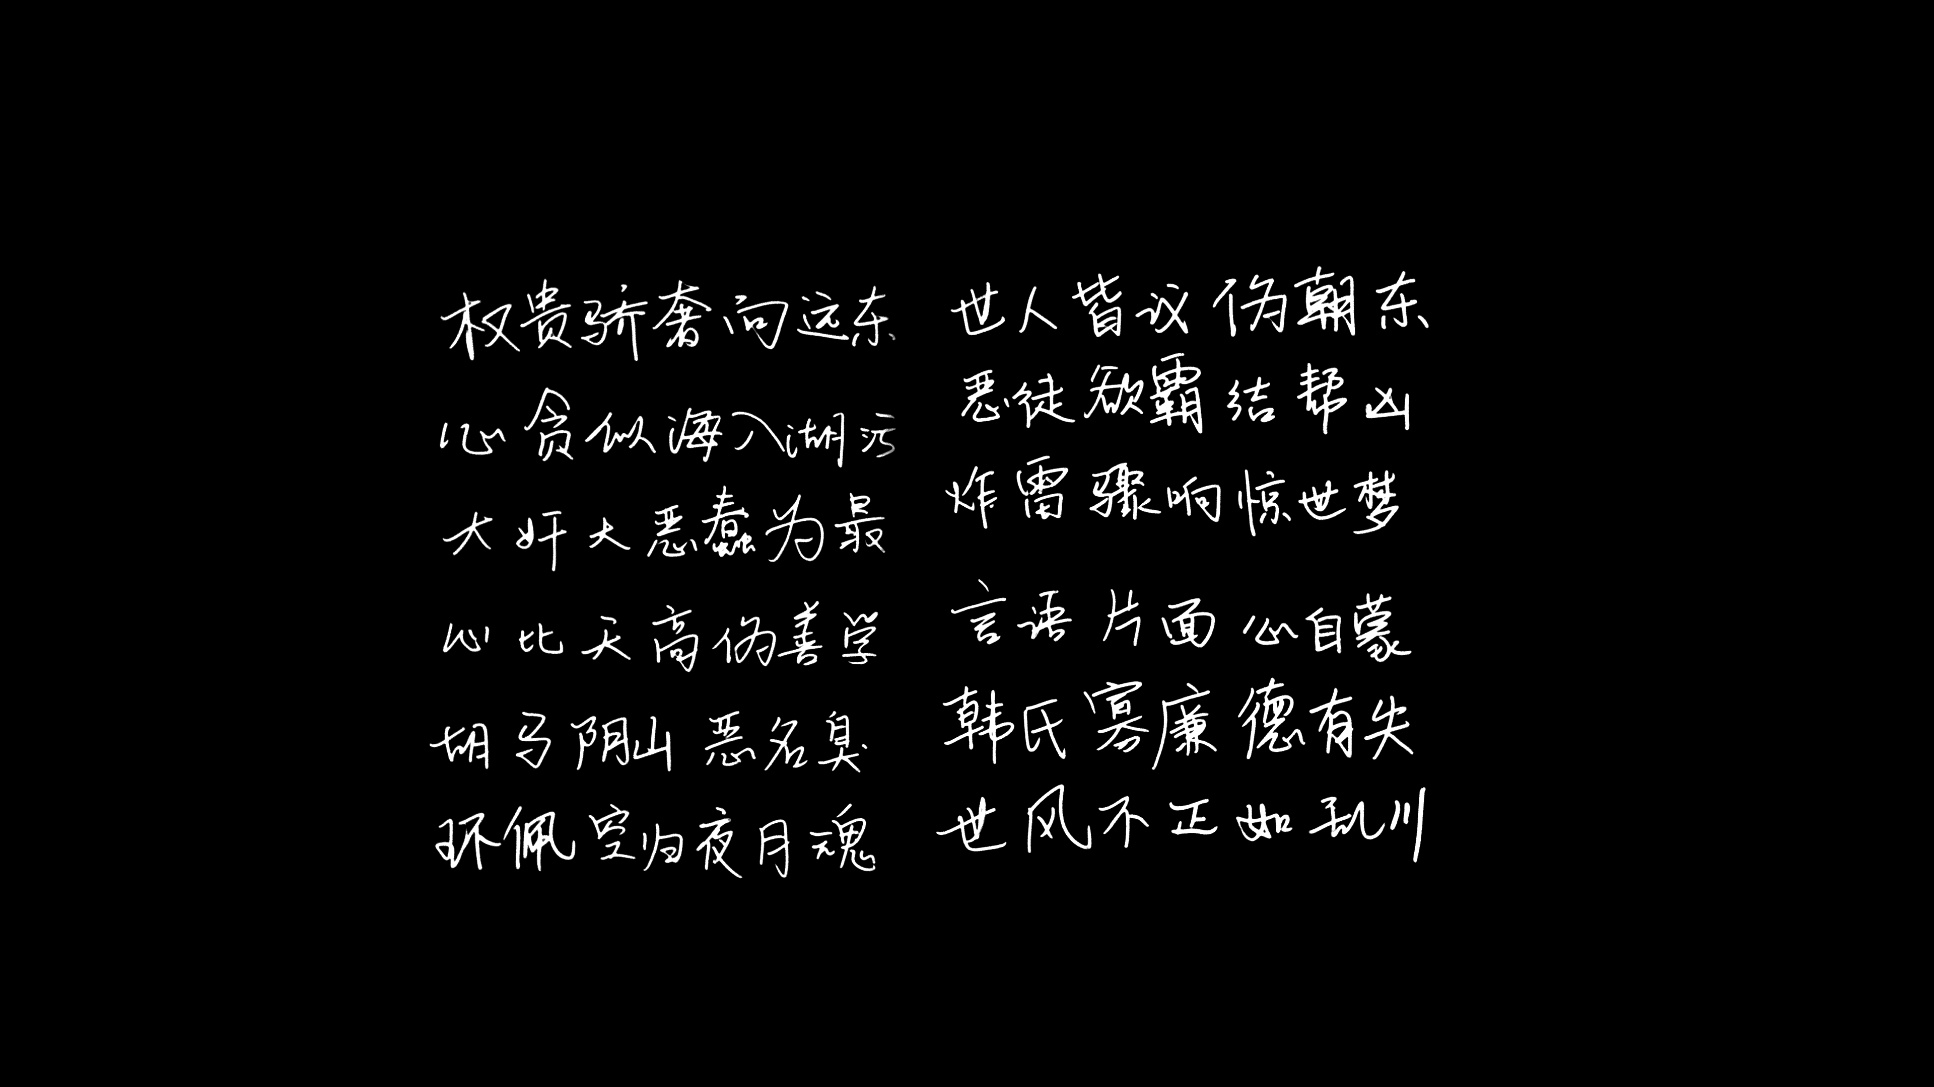 权贵骄奢向远东
心贪似海入湖污
大奸大恶蠢为最
心比天高伪善学
胡马阴山恶名臭
环佩空归夜月魂
世人皆议伪朝东
恶徒欲霸结帮凶
炸雷骤响惊世梦
言语片面心自蒙
韩氏寡廉德有失
世风不正如乱川